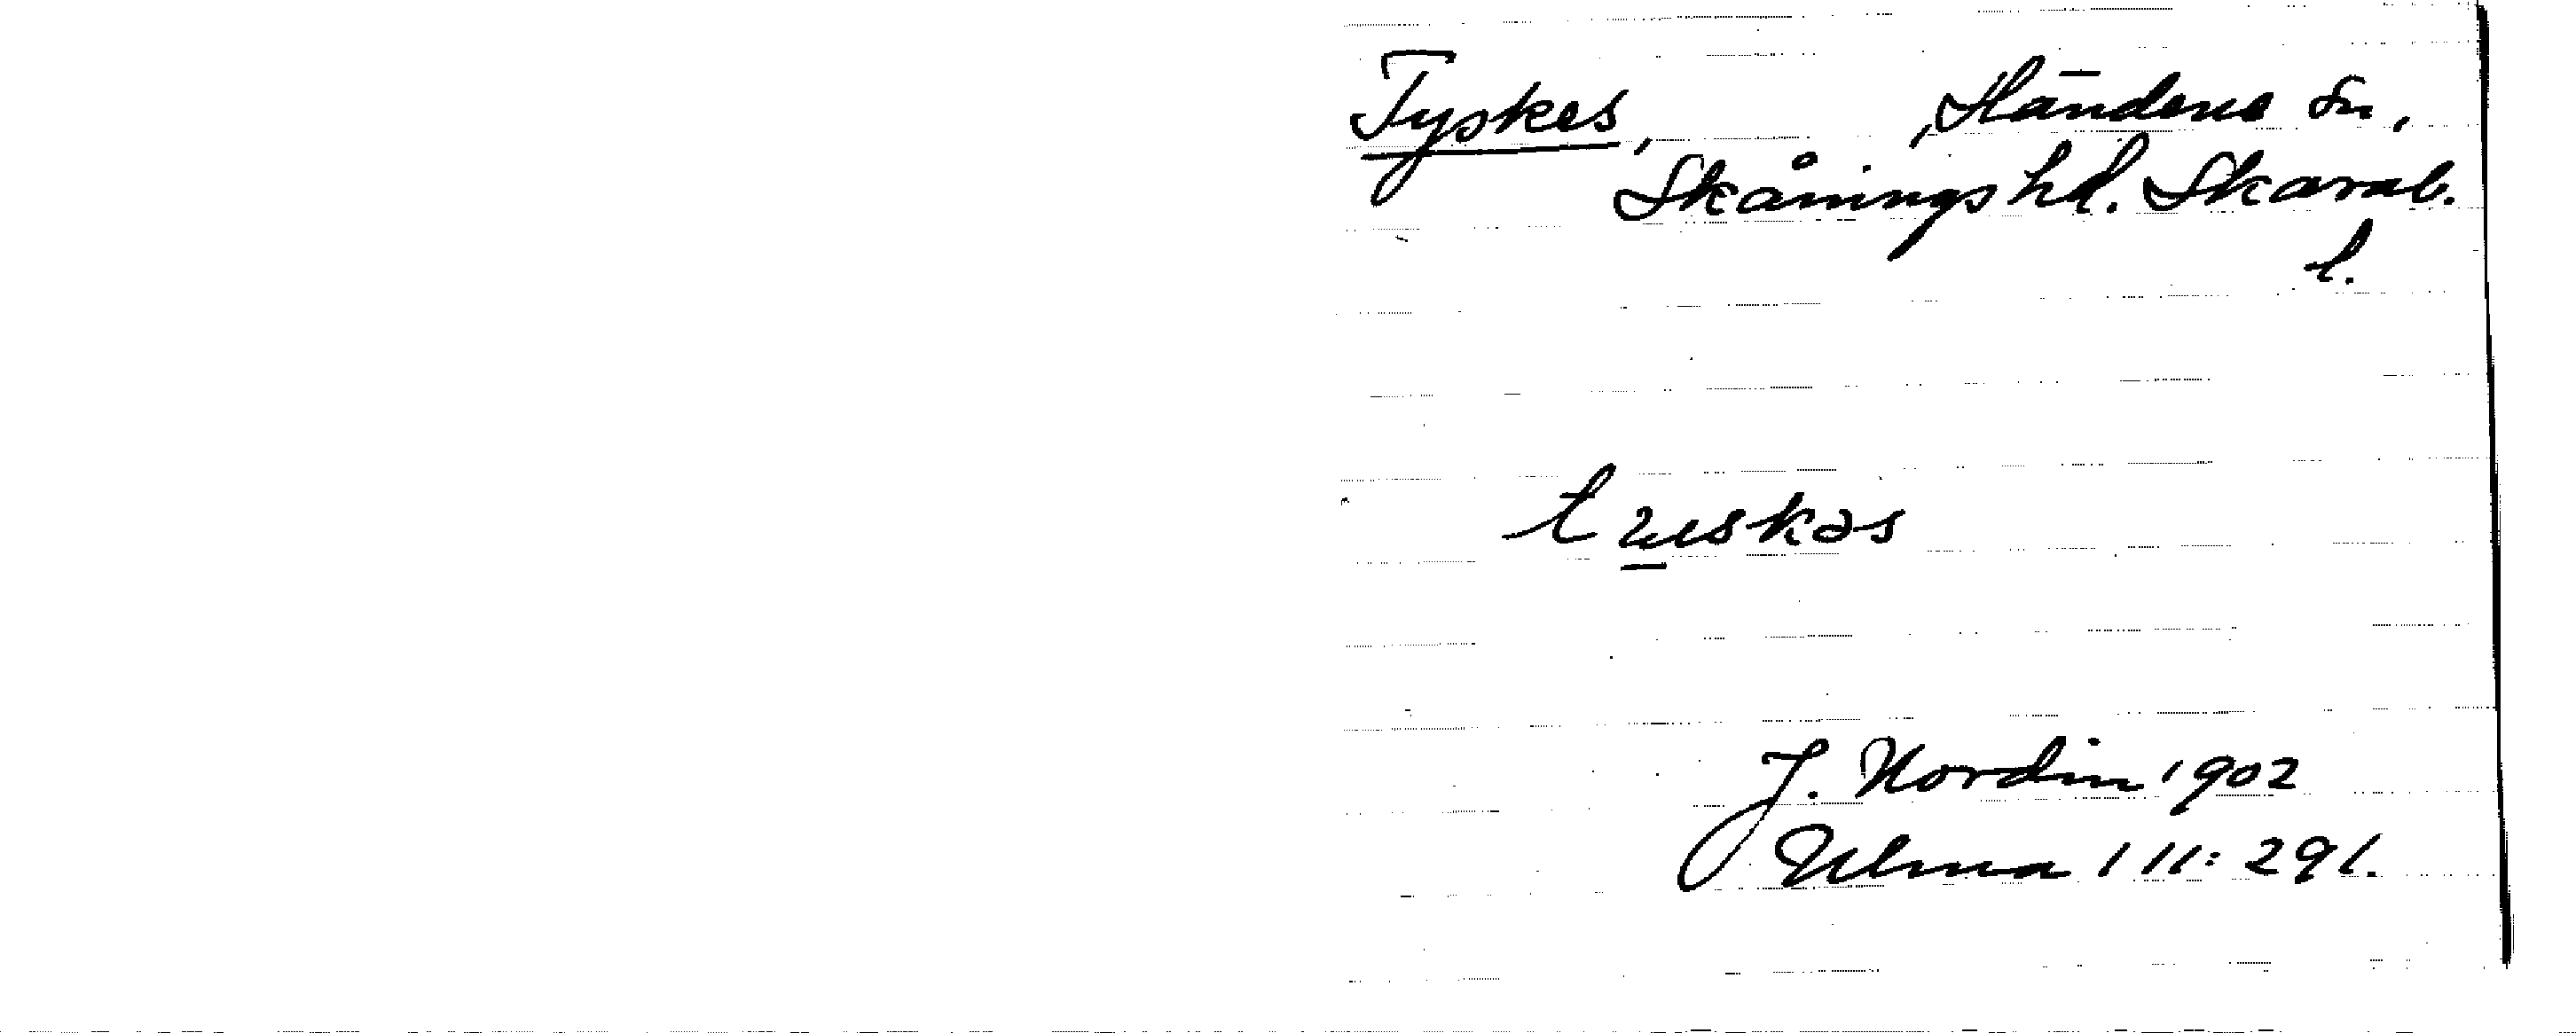 Tyskes, , Händene sn,
Skånings hd. Skarab.
l.
J. Nordin 1902
Ulma 111: 291.